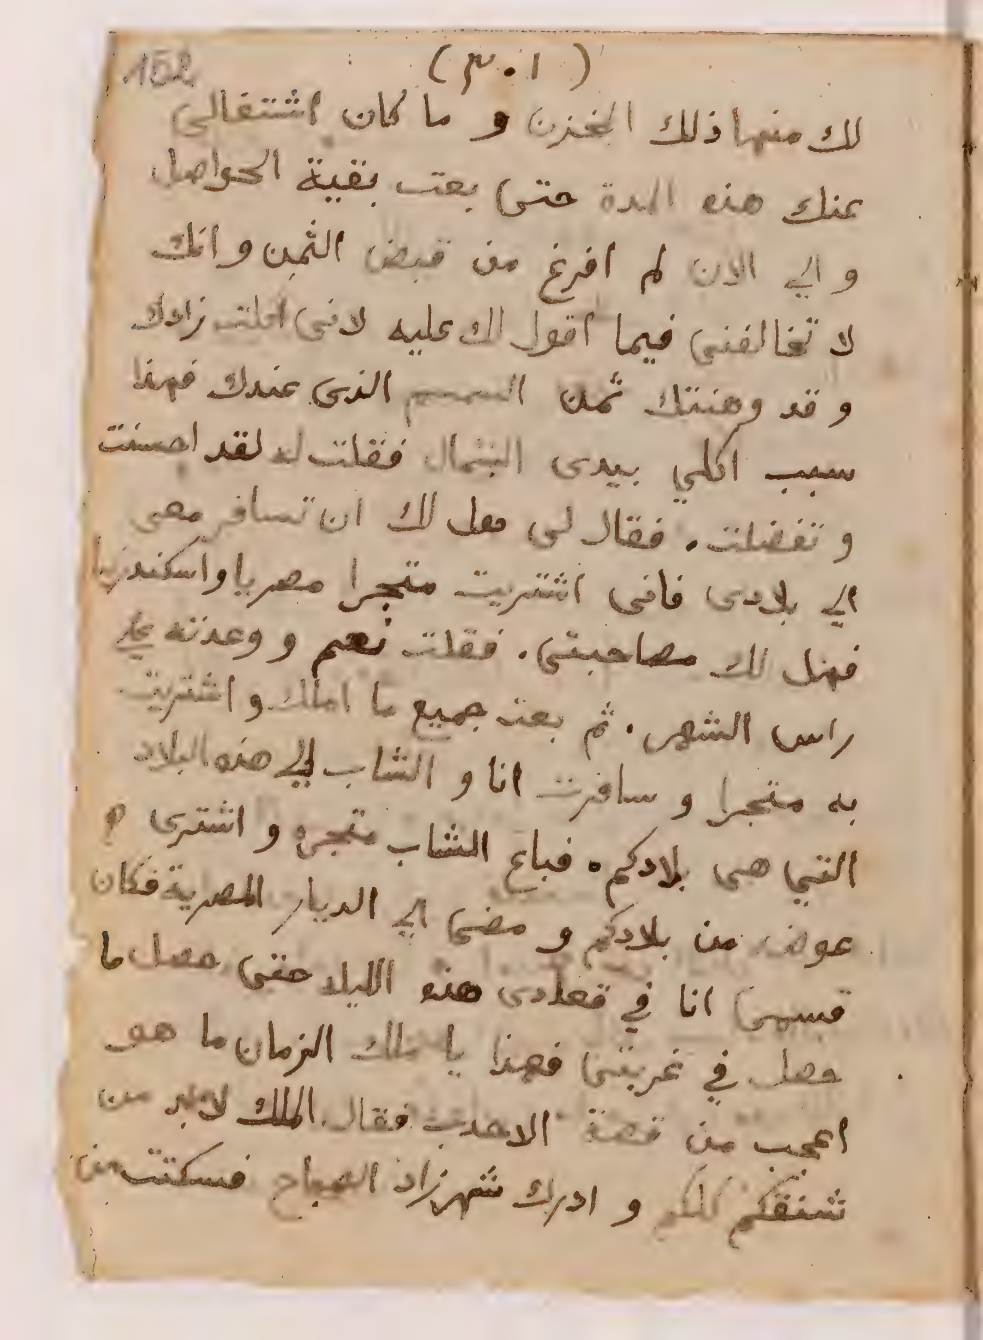 152
(٣٠١)
لك منها ذلك المخزن و ما كان اشتغالى
عنك هذه المدة حتى بعت بقية الحواصل
و الي الان لم افرغ من قبض الثمن و انك
لا تخالفنى فيما اقول لك عليه لانى اكلت زادك
و قد وهبتك ثمن السمسم الذى عندك فهذا
سبب اكلي بيدى الشمال فقلت له لقد احسنت
و تفضلت. فقال لى هل لك ان تسافر معى
الي بلادى فانى اشتريت متجرا مصريا واسكندريا
فهل لك مصاحبتى. فقلت نعم و وعدته على
راس الشهر. ثم بعت جميع ما املك و اشتريت
به متجرا و سافرت انا و الشاب الي هذه البلاد
التي هى بلادكم. فباع الشاب متجره و اشترى
عوضه من بلادكم و مضى الي الديار المصرية فكان
قسمى انا في قعادى هذه الليله حتى حصل ما
حصل في غربتى فهذا يا ملك الزمان ما هو
اعجب من قصة الاحدب فقال الملك لابد من
شنقكم كلكم و ادرك شهرزاد الصباح فسكتت عن